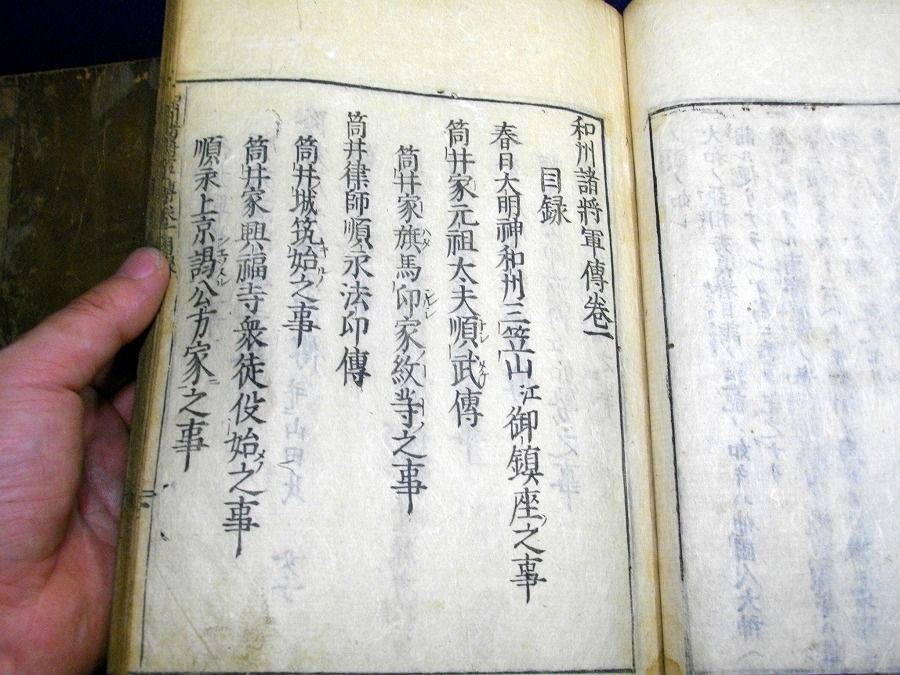 和州諸將軍傳卷一
目録
春日大明神和州三笠山江御鎮座之事
筒井家元祖太夫順武傳
筒井家旗馬印家紋等之事
筒井律師順永法印傳
筒井城筑始之事
筒井家興福寺衆徒役始之事
順永上京謁公方家之事